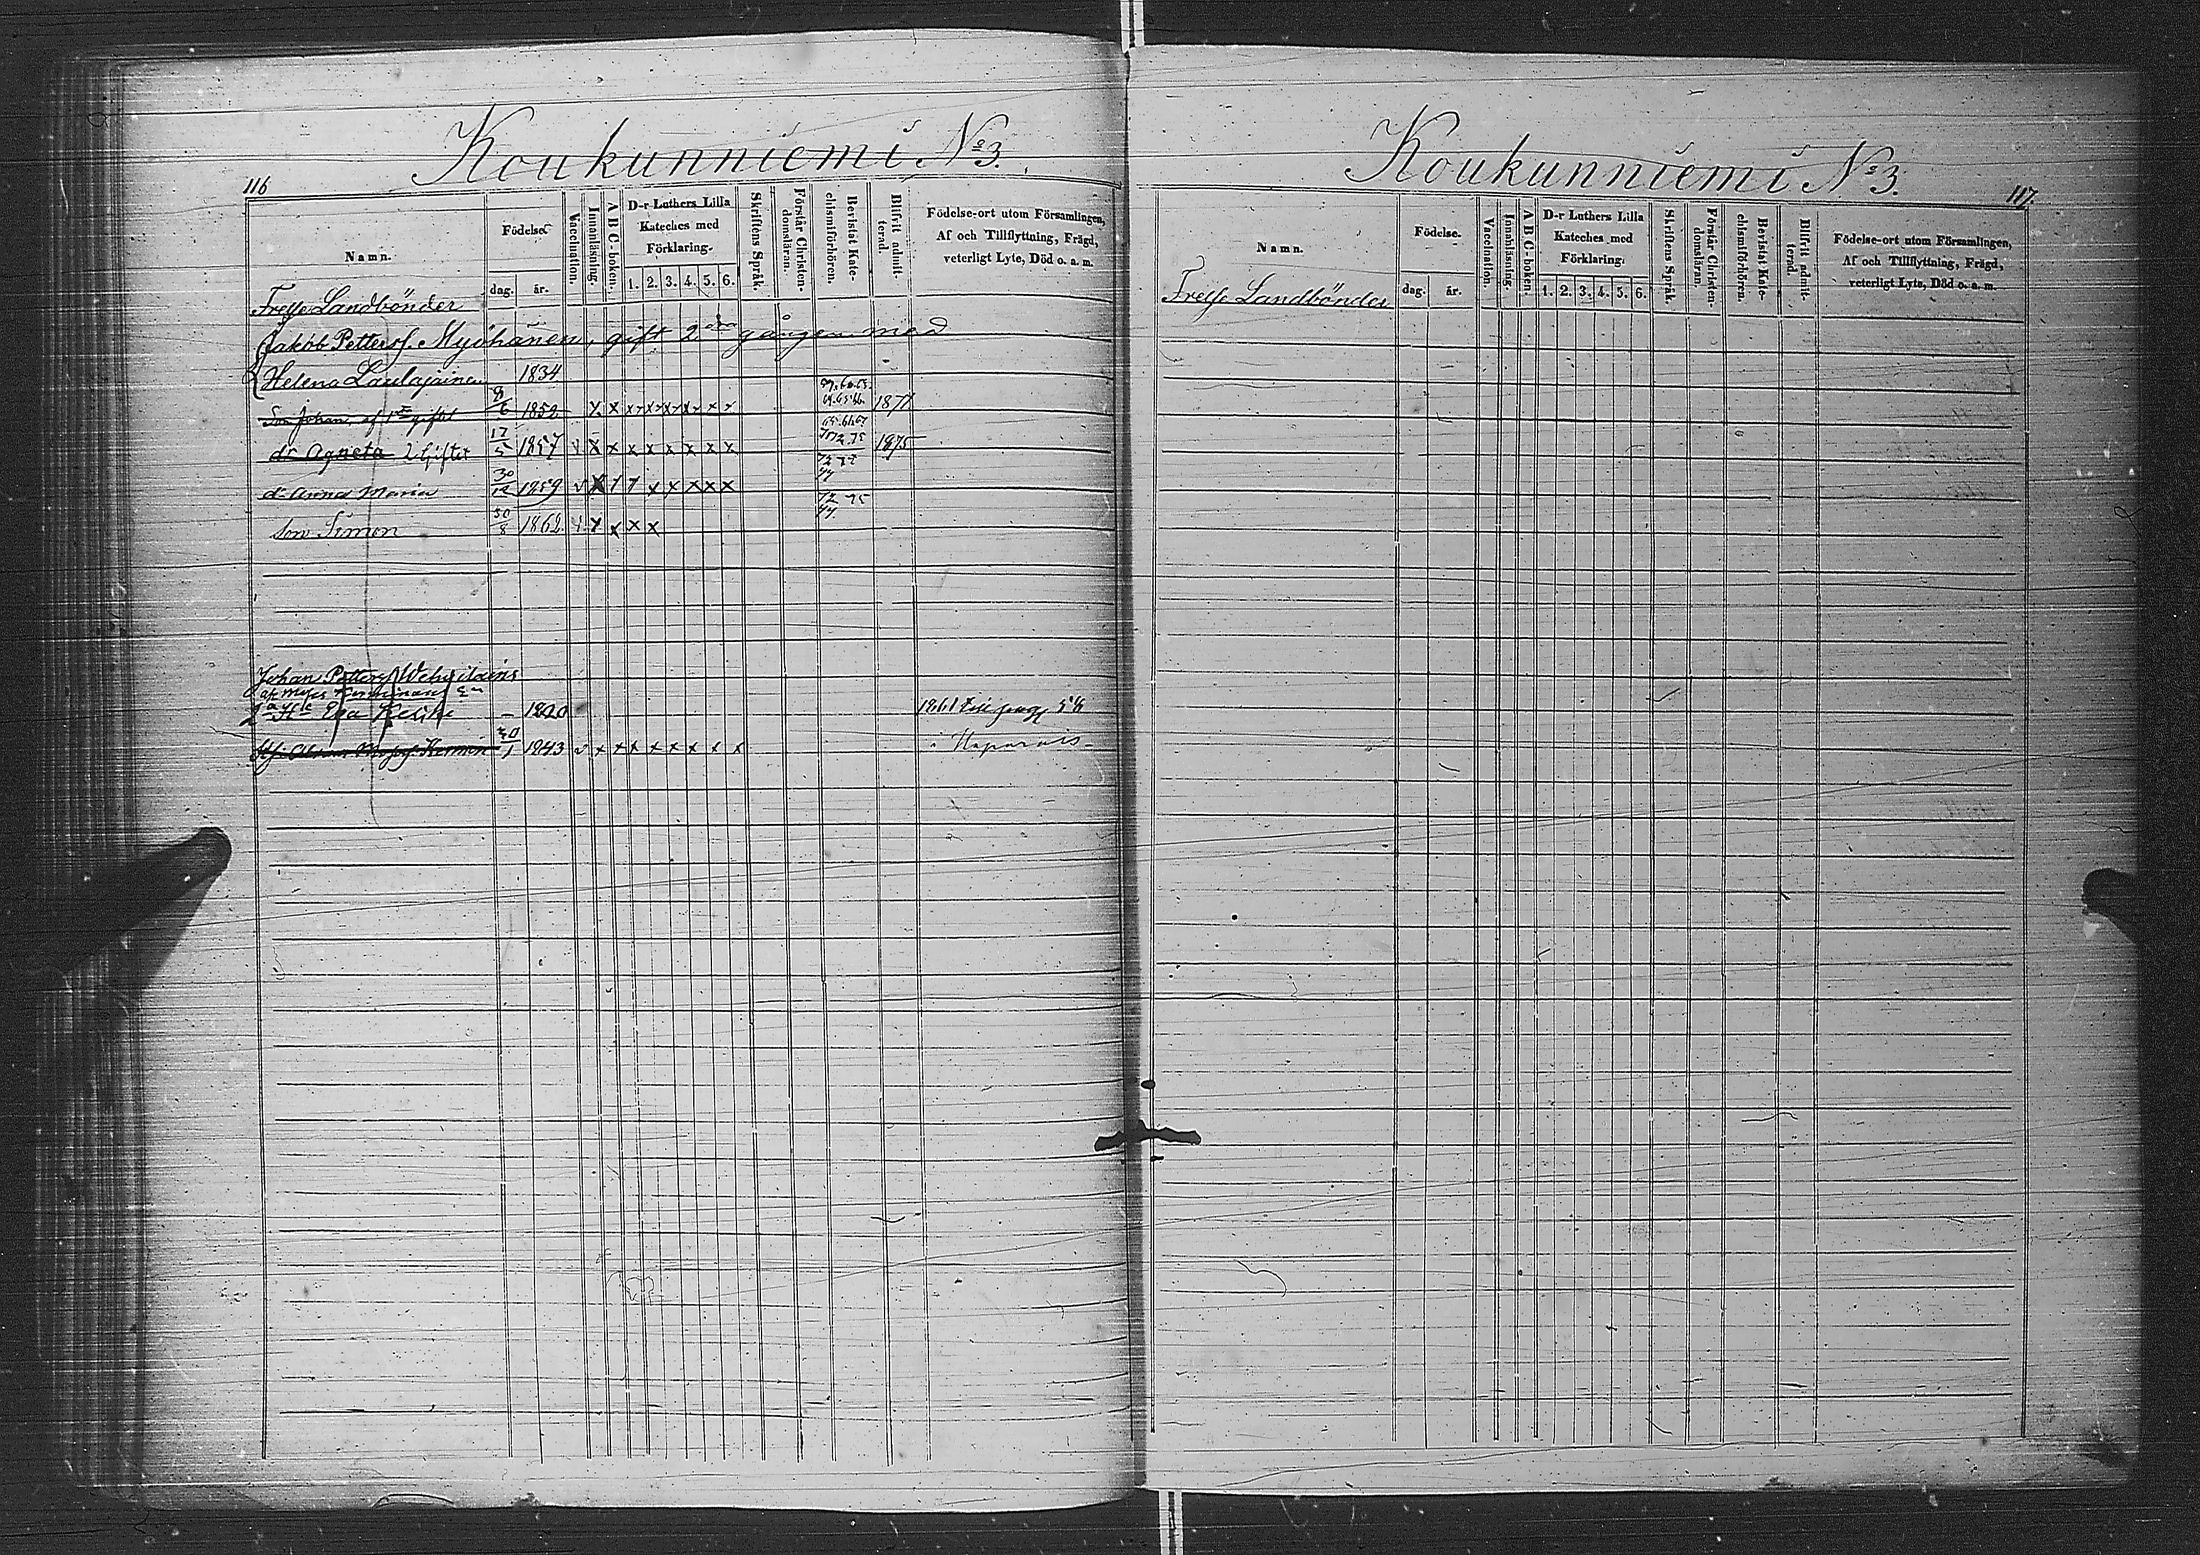 Koukunniemi No 3.
116
Namn.
Födelse.
dag.
år.
Vaccination.
Innanläsning.
ABC-boken.
D-r Luthers Lilla
Kateches med
Förklaring.
1. 2. 3. 4. 5. 6.
Skriftens Språk.
Förstår Christen-
domsläran.
Bevistat Kate-
chismiförhören.
Blifvit admit-
terad.
Födelse-ort utom Församlingen,
Af och Tillflyttning, Frägd,
veterligt Lyte, Död o. a. m.
Frelse Landbönder
Jakob Petters. Myöhänen, gift 2dra gången med
Helena Laulajainen 1834
Son Johan, af 1sta giftet 6 1852 x x x x x x x x 1871
dr Agneta 2 giftet 17/5 1857 x x x x x x x x 1875
dr Anna Maria 30/12 1859 x x x x x x
72 75
Son Simon 30/8 1862 x x x x
Johan Petters
Eva 1820 1861
30/1 1843 x x x x x x x x
Koukunniemi No 3.
117.
Namn.
Födelse.
dag.
år.
Vaccination.
Innanläsning.
ABC-boken.
D-r Luthers Lilla
Kateches med
Förklaring.
1. 2. 3. 4. 5. 6.
Skriftens Språk.
Förstår Christen-
domsläran.
Bevistat Kate-
chismiförhören.
Blifvit admit-
terad.
Födelse-ort utom Församlingen,
Af och Tillflyttning, Frägd,
veterligt Lyte, Död o. a. m.
Frelse Landbönder